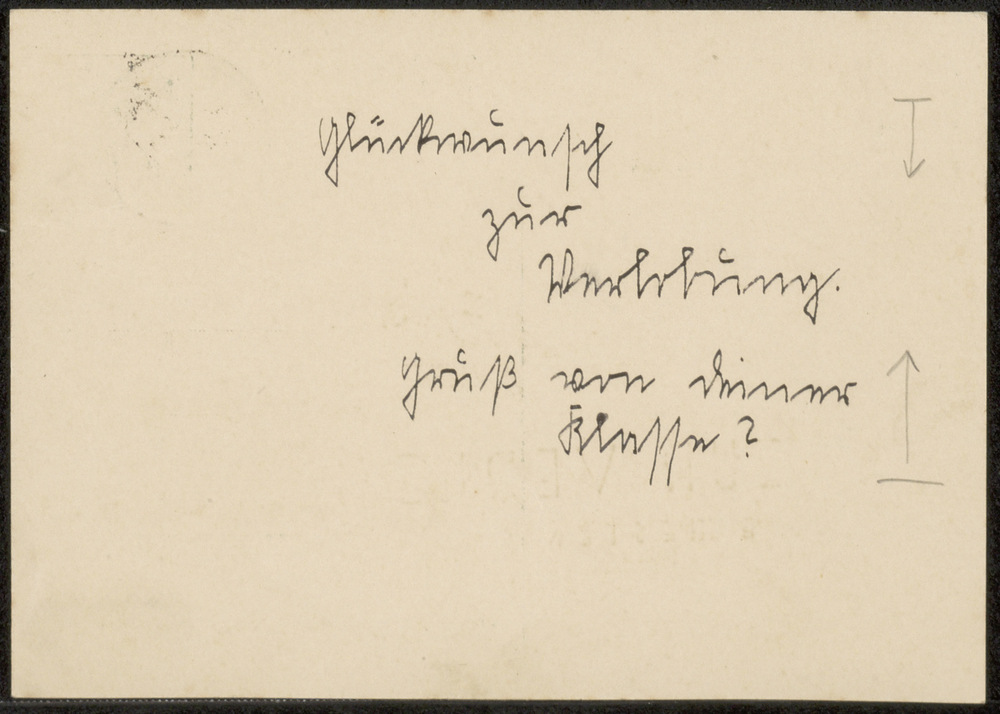 Glückwunsch
zur
Verlobung.
Gruß von deiner
Klasse?